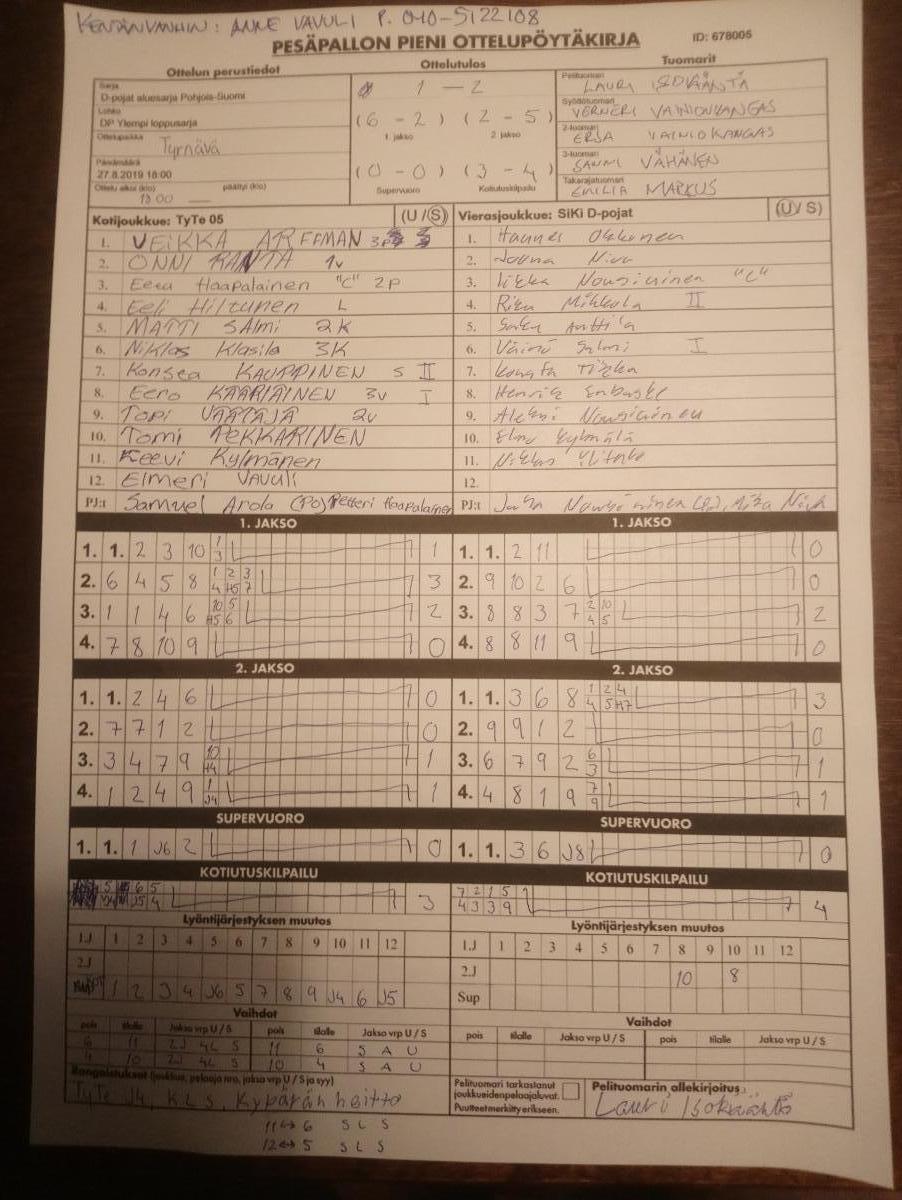 KENTÄNVANHIN: ANNE VAVULI P. 040-5122108
PESÄPALLON PIENI OTTELUPÖYTÄKIRJA ID: 678005
Ottelun perustiedot Ottelutulos Tuomarit
Sarja
D-pojat aluesarja Pohjois-Suomi
1 - 2
Pelituomari
LAURI ISOKÄÄNTÄ
Lohko
DP Ylempi loppusarja
(6 - 2) (2 - 5)
1. jakso 2. jakso
Syöttötuomari
VERNERI VAINIONKANGAS
Ottelupaikka
Tyrnävä
2-tuomari
ERJA VAINIOKANGAS
Päivämäärä
27.8.2019 18:00
(0 - 0) (3 - 4)
Supervuoro Kotiutuskilpailu
3-tuomari
SANNI VÄHÄNEN
Ottelu alkoi (klo) päättyi (klo)
18 00
Takarajatuomari
EMILIA MARKUS
Kotijoukkue: TyTe 05 (U / S)
1. VEIKKA 3P
2. ONNI RANTA 1v
3. Eeea Haapalainen "C" 2P
4. Eeli Hiltunen L
5. MATTI SAlmi 2K
6. Niklas Klasila 3K
7. KAUPPINEN S II
8. Eero KÄÄRIÄINEN 3v I
9. TOPI VÄÄTÄJÄ 2v
10. Tomi PEKKARINEN
11. Keevi Kylmänen
12. Elmeri VAVULI
PJ:t Samuel Arola (PO) Petteri Haapalainen
Vierasjoukkue: SiKi D-pojat (U / S)
1. Hannes
2. Joona
3. Iikka Nousiainen "C"
4. Riku Mikkola II
5. Anttila
6. Väinö Salmi I
7.
8. Henrik
9. Aleksi Nousiainen
10. Kylmälä
11. Niklas
12.
PJ:t
1. JAKSO
1. 1. 2 3 10 1 3 1
2. 6 4 5 8 1 2 3 4 H5 7 3
3. 1 1 4 6 10 5 H5 6 2
4. 7 8 10 9 0
1. JAKSO
1. 1. 2 11 0
2. 9 10 2 6 0
3. 8 8 3 7 2 10 4 5 2
4. 8 8 11 9 0
2. JAKSO
1. 1. 2 4 6 0
2. 7 7 1 2 0
3. 3 4 7 9 10 H4 1
4. 1 2 4 9 1 J4 1
2. JAKSO
1. 1. 3 6 8 1 2 4 4 5 H7 3
2. 9 9 1 2 0
3. 6 7 9 2 6 3 1
4. 4 8 1 9 7 9 1
SUPERVUORO
1. 1. 1 J6 2 0
SUPERVUORO
1. 1. 3 6 J8 0
KOTIUTUSKILPAILU
3
KOTIUTUSKILPAILU
7 2 1 5
4 3 3 9 4
Lyöntijärjestyksen muutos
1.J 1 2 3 4 5 6 7 8 9 10 11 12
2.J
1 2 3 4 J6 5 7 8 9 J4 6 J5
Lyöntijärjestyksen muutos
1.J 1 2 3 4 5 6 7 8 9 10 11 12
2.J 10 8
Sup
Vaihdot
pois tilalle Jakso vrp U / S pois tilalle Jakso vrp U / S
6 11 2J 4L S 11 6 S A U
4 10 2J 4L S 10 4 S A U
Vaihdot
pois tilalle Jakso vrp U / S pois tilalle Jakso vrp U / S
Rangaistukset (joukkue, pelaaja nro, jakso vrp U / S ja syy)
TyTe J4, KLS, Kypärän heitto
11 <-> 6 S L S
12 <-> 5 S L S
Pelituomari tarkastanut
joukkueidenpelaajaluvat.
Puutteet merkitty erikseen.
Pelituomarin allekirjoitus
Lauri Isokääntä